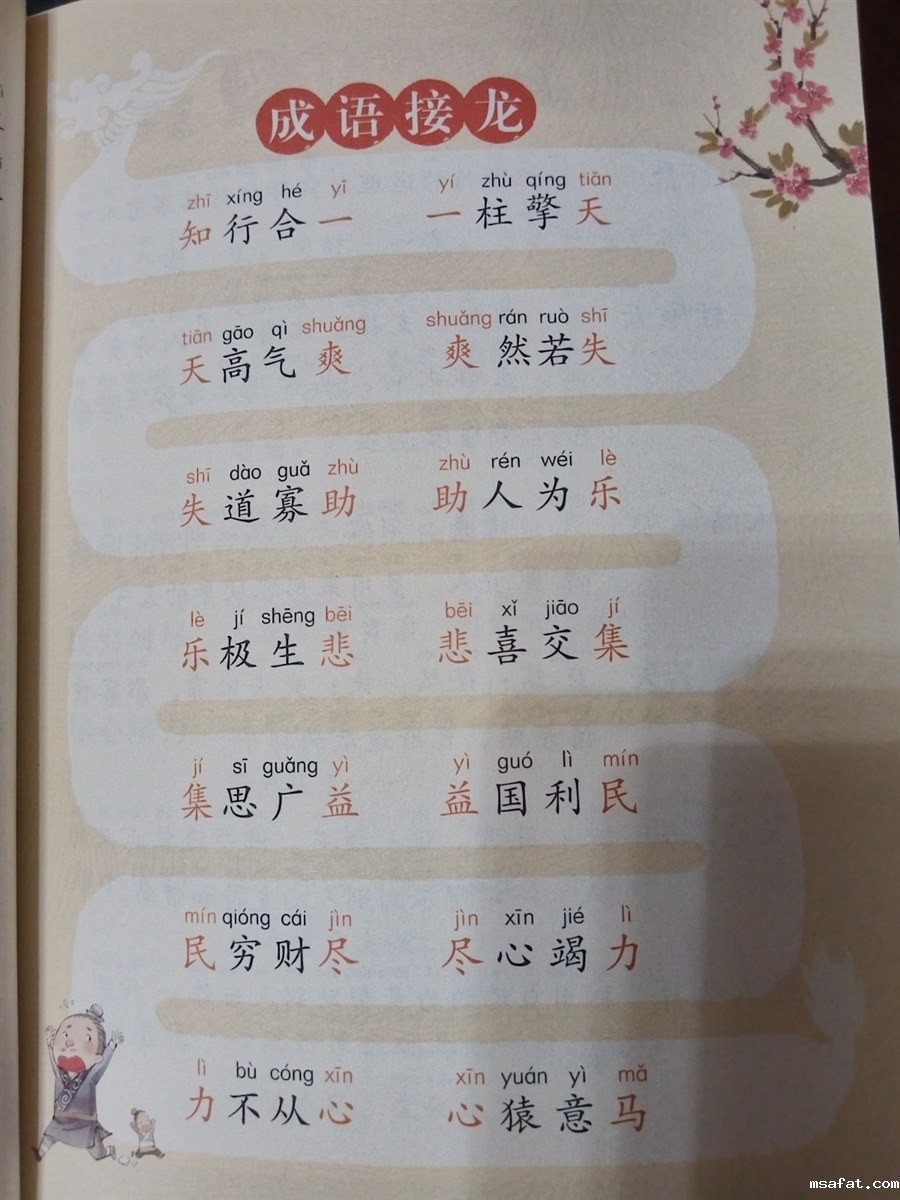 成语接龙
zhī xíng hé yī yí zhù qíng tiān
知行合一 一柱擎天
tiān gāo qì shuǎng shuǎng rán ruò shī
天高气爽 爽然若失
shī dào guǎ zhù zhù rén wéi lè
失道寡助 助人为乐
lè jí shēng bēi bēi xǐ jiāo jí
乐极生悲 悲喜交集
jí sī guǎng yì yì guó lì mín
集思广益 益国利民
mín qióng cái jìn jìn xīn jié lì
民穷财尽 尽心竭力
lì bù cóng xīn xīn yuán yì mǎ
力不从心 心猿意马
msafat.com